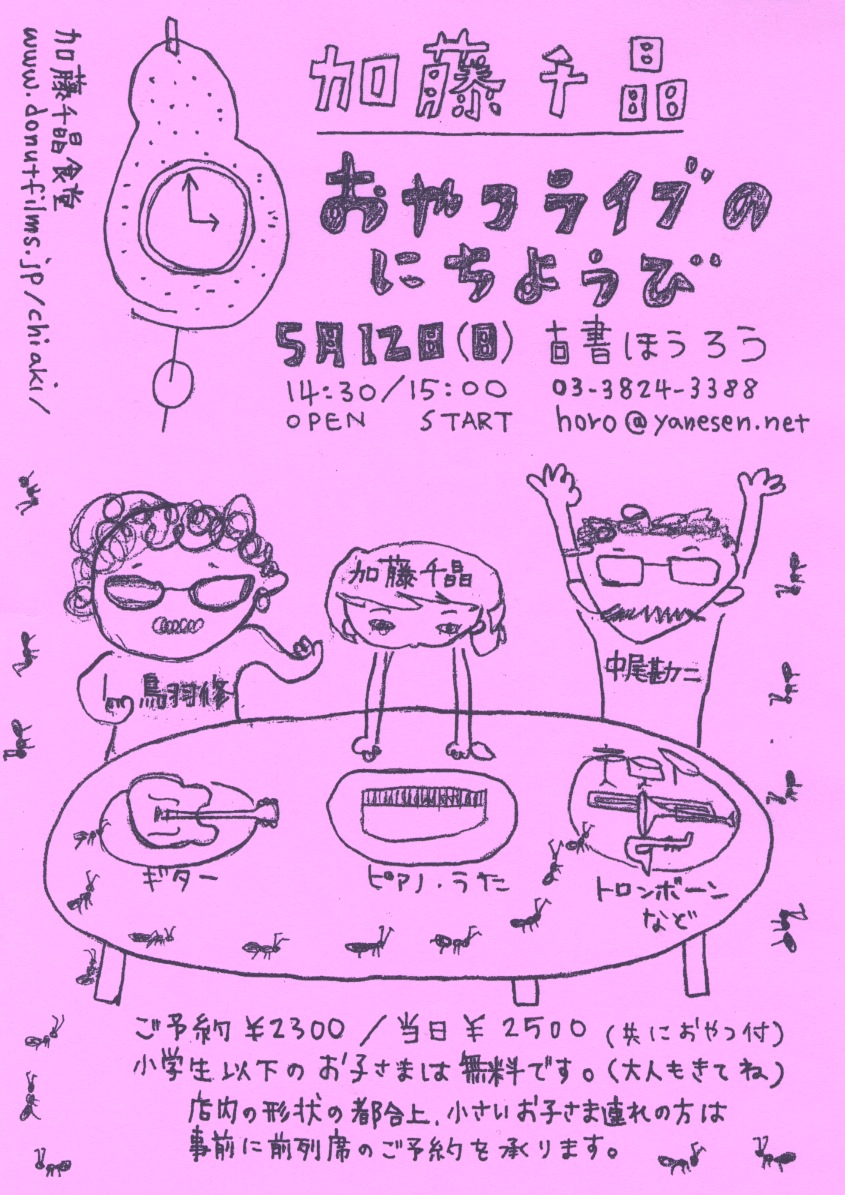 加藤千晶
おやつライブの
にちようび
5月12日(日) 古書ほうろう
14:30/15:00 03-3824-3388
OPEN START horo@yanesen.net
加藤千晶食堂
www.donutfilms.jp/chiaki/
加藤千晶
鳥羽修
中尾勘二
ギター
ピアノ・うた
トロンボーン
など
ご予約¥2300/当日¥2500(共におやつ付)
小学生以下のお子さまは無料です。(大人もきてね)
店内の形状の都合上、小さいお子さま連れの方は
事前に前列席のご予約を承ります。